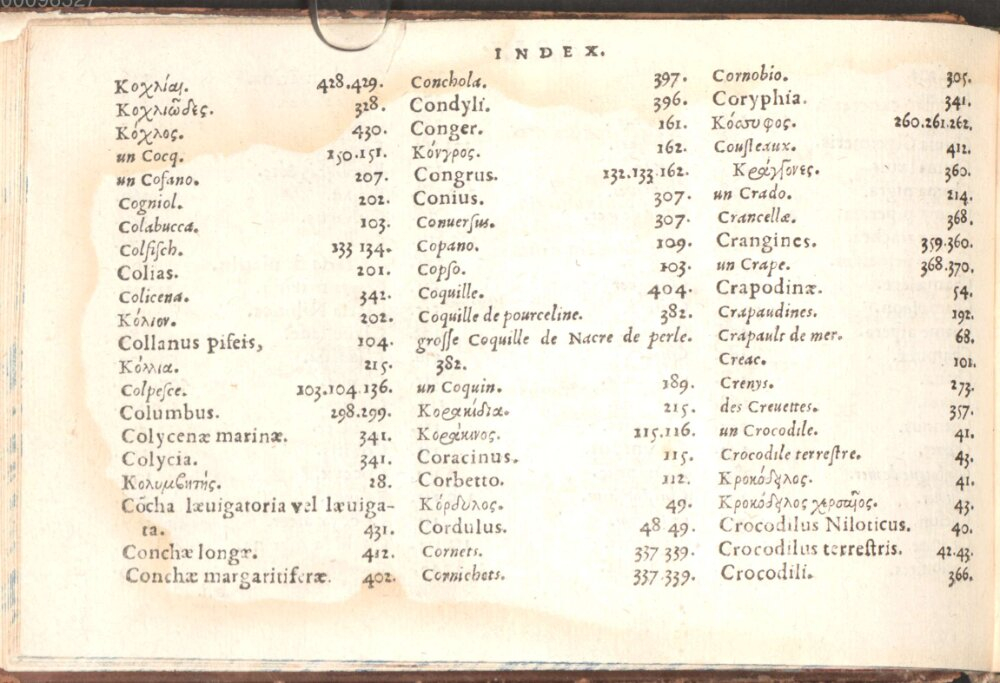 INDEX.
Κοχλίαι. 428.429.
Κοχλιῶδες. 328.
Κόχλος. 430.
un Cocq. 150.151.
un Cofano. 207.
Cogniol. 202.
Colabucca. 103.
Colfiſch. 133 134.
Colias. 201.
Colicena. 342.
Κόλιον. 202.
Collanus piſeis, 104.
Κόλλια. 215.
Colpeſce. 103.104.136.
Columbus. 298.299.
Colycenæ marinæ. 341.
Colycia. 341.
Κολυμβητής. 28.
Cōcha læuigatoria vel læuiga-
ta. 431.
Conchæ longæ. 412.
Conchæ margaritiferæ. 402.
Conchola. 397.
Condyli. 396.
Conger. 161.
Κόνγρος. 162.
Congrus. 132.133.162.
Conius. 307.
Conuerſus. 307.
Copano. 109.
Copſo. 103.
Coquille. 404.
Coquille de pourceline. 382.
groſſe Coquille de Nacre de perle.
382.
un Coquin. 189.
Κορακίδια. 215.
Κοράκινος. 115.116.
Coracinus. 115.
Corbetto. 112.
Κόρδυλος. 49.
Cordulus. 48 49.
Cornets. 337 339.
Cornichets. 337.339.
Cornobio. 305.
Coryphia. 341.
Κόσσυφος. 260.261.262.
Couſteaux. 412.
Κράγγονες. 360.
un Crado. 214.
Crancellæ. 368.
Crangines. 359.360.
un Crape. 368.370.
Crapodinæ. 54.
Crapaudines. 192.
Crapault de mer. 68.
Creac. 101.
Crenys. 273.
des Creuettes. 357.
un Crocodile. 41.
Crocodile terreſtre. 43.
Κροκόδειλος. 41.
Κροκόδειλος χερσαῖος. 43.
Crocodilus Niloticus. 40.
Crocodilus terreſtris. 42.43.
Crocodili. 366.